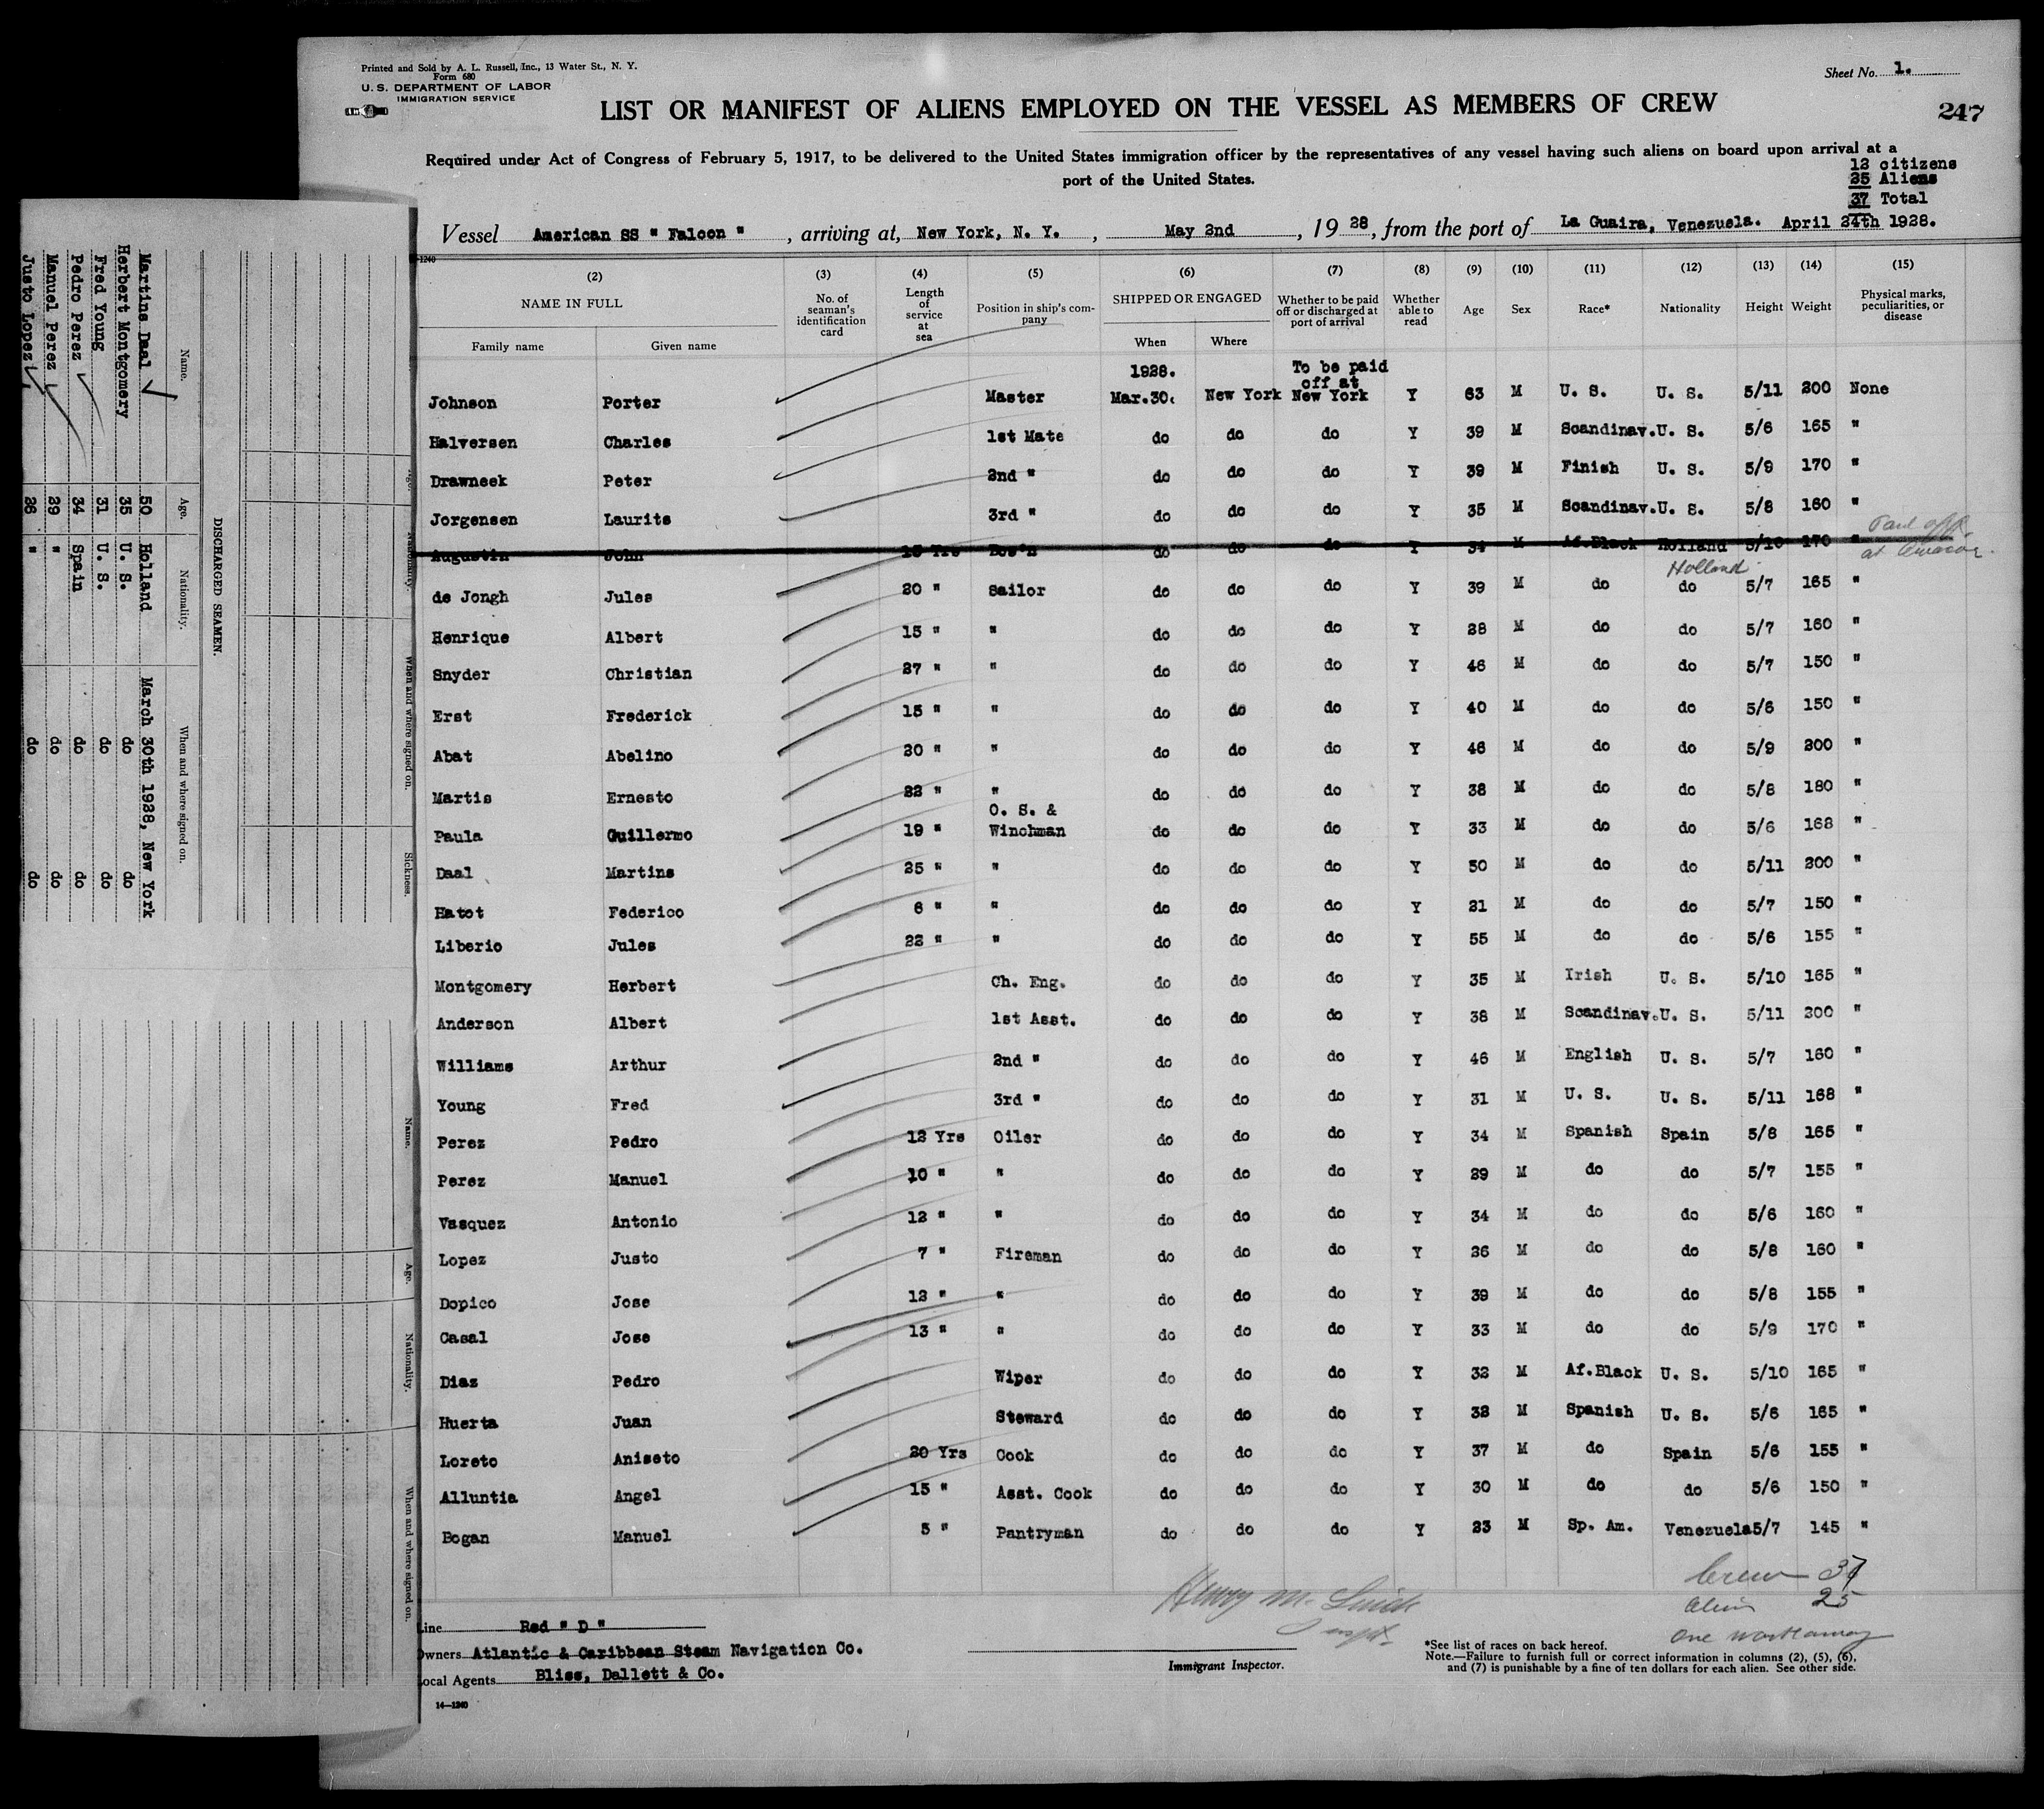 Printed and Sold by A. L. Russell, Inc., 13 Water St., N. Y.
Form 680
U. S. DEPARTMENT OF LABOR
IMMIGRATION SERVICE
Sheet No. 1.
LIST OR MANIFEST OF ALIENS EMPLOYED ON THE VESSEL AS MEMBERS OF CREW
247
Required under Act of Congress of February 5, 1917, to be delivered to the United States immigration officer by the representatives of any vessel having such aliens on board upon arrival at a
port of the United States.
12 citizens
25 Aliens
37 Total
Vessel American SS " Falcon ", arriving at, New York, N. Y., May 2nd, 1928, from the port of La Guaira, Venezuela. April 24th 1928.
1240
(2) (3) (4) (5) (6) (7) (8) (9) (10) (11) (12) (13) (14) (15)
NAME IN FULL No. of seaman's identification card Length of service at sea Position in ship's company SHIPPED OR ENGAGED Whether to be paid off or discharged at port of arrival Whether able to read Age Sex Race* Nationality Height Weight Physical marks, peculiarities, or disease
Family name Given name When Where
1928. To be paid off at
Johnson Porter Master Mar.30. New York New York Y 63 M U. S. U. S. 5/11 200 None
Halversen Charles 1st Mate do do do Y 39 M Scandinav. U. S. 5/6 165 "
Drawneek Peter 2nd " do do do Y 39 M Finish U. S. 5/9 170 "
Jorgensen Laurits 3rd " do do do Y 35 M Scandinav. U. S. 5/8 160 "
Augustin John 15 Yrs Bos'n do do do Y 34 M Af.Black Holland 5/10 170 " Paid off at Curacao.
Holland
de Jongh Jules 20 " Sailor do do do Y 39 M do do 5/7 165 "
Henrique Albert 15 " " do do do Y 28 M do do 5/7 160 "
Snyder Christian 27 " " do do do Y 46 M do do 5/7 150 "
Erst Frederick 15 " " do do do Y 40 M do do 5/6 150 "
Abat Abelino 20 " " do do do Y 46 M do do 5/9 200 "
Martis Ernesto 22 " " do do do Y 38 M do do 5/8 180 "
O. S. &
Paula Guillermo 19 " Winchman do do do Y 33 M do do 5/6 168 "
Daal Martins 25 " " do do do Y 50 M do do 5/11 200 "
Hatot Federico 6 " " do do do Y 21 M do do 5/7 150 "
Liberio Jules 22 " " do do do Y 55 M do do 5/6 155 "
Montgomery Herbert Ch. Eng. do do do Y 35 M Irish U. S. 5/10 165 "
Anderson Albert 1st Asst. do do do Y 38 M Scandinav. U. S. 5/11 200 "
Williams Arthur 2nd " do do do Y 46 M English U. S. 5/7 160 "
Young Fred 3rd " do do do Y 31 M U. S. U. S. 5/11 168 "
Perez Pedro 12 Yrs Oiler do do do Y 34 M Spanish Spain 5/8 165 "
Perez Manuel 10 " " do do do Y 29 M do do 5/7 155 "
Vasquez Antonio 12 " " do do do Y 34 M do do 5/6 160 "
Lopez Justo 7 " Fireman do do do Y 26 M do do 5/8 160 "
Dopico Jose 12 " " do do do Y 39 M do do 5/8 155 "
Casal Jose 13 " " do do do Y 33 M do do 5/9 170 "
Diaz Pedro Wiper do do do Y 32 M Af.Black U. S. 5/10 165 "
Huerta Juan Steward do do do Y 38 M Spanish U. S. 5/6 165 "
Loreto Aniseto 20 Yrs Cook do do do Y 37 M do Spain 5/6 155 "
Alluntia Angel 15 " Asst. Cook do do do Y 30 M do do 5/6 150 "
Bogan Manuel 5 " Pantryman do do do Y 23 M Sp. Am. Venezuela 5/7 145 "
Crew 37
Alien 25
One workaway
Henry M.
Inspt.
Line Red " D "
Owners Atlantic & Caribbean Steam Navigation Co.
Local Agents Bliss, Dallett & Co.
14—1240
Immigrant Inspector.
*See list of races on back hereof.
Note.—Failure to furnish full or correct information in columns (2), (5), (6),
and (7) is punishable by a fine of ten dollars for each alien. See other side.
DISCHARGED SEAMEN.
Name. Age. Nationality. When and where signed on.
Martins Daal 50 Holland March 30th 1928, New York
Herbert Montgomery 35 U. S. do do
Fred Young 31 U. S. do do
Pedro Perez 34 Spain do do
Manuel Perez 29 " do do
Justo Lopez 26 " do do
Age. Nationality. When and where signed on. Sickness.
Name. Age. Nationality. When and where signed on.